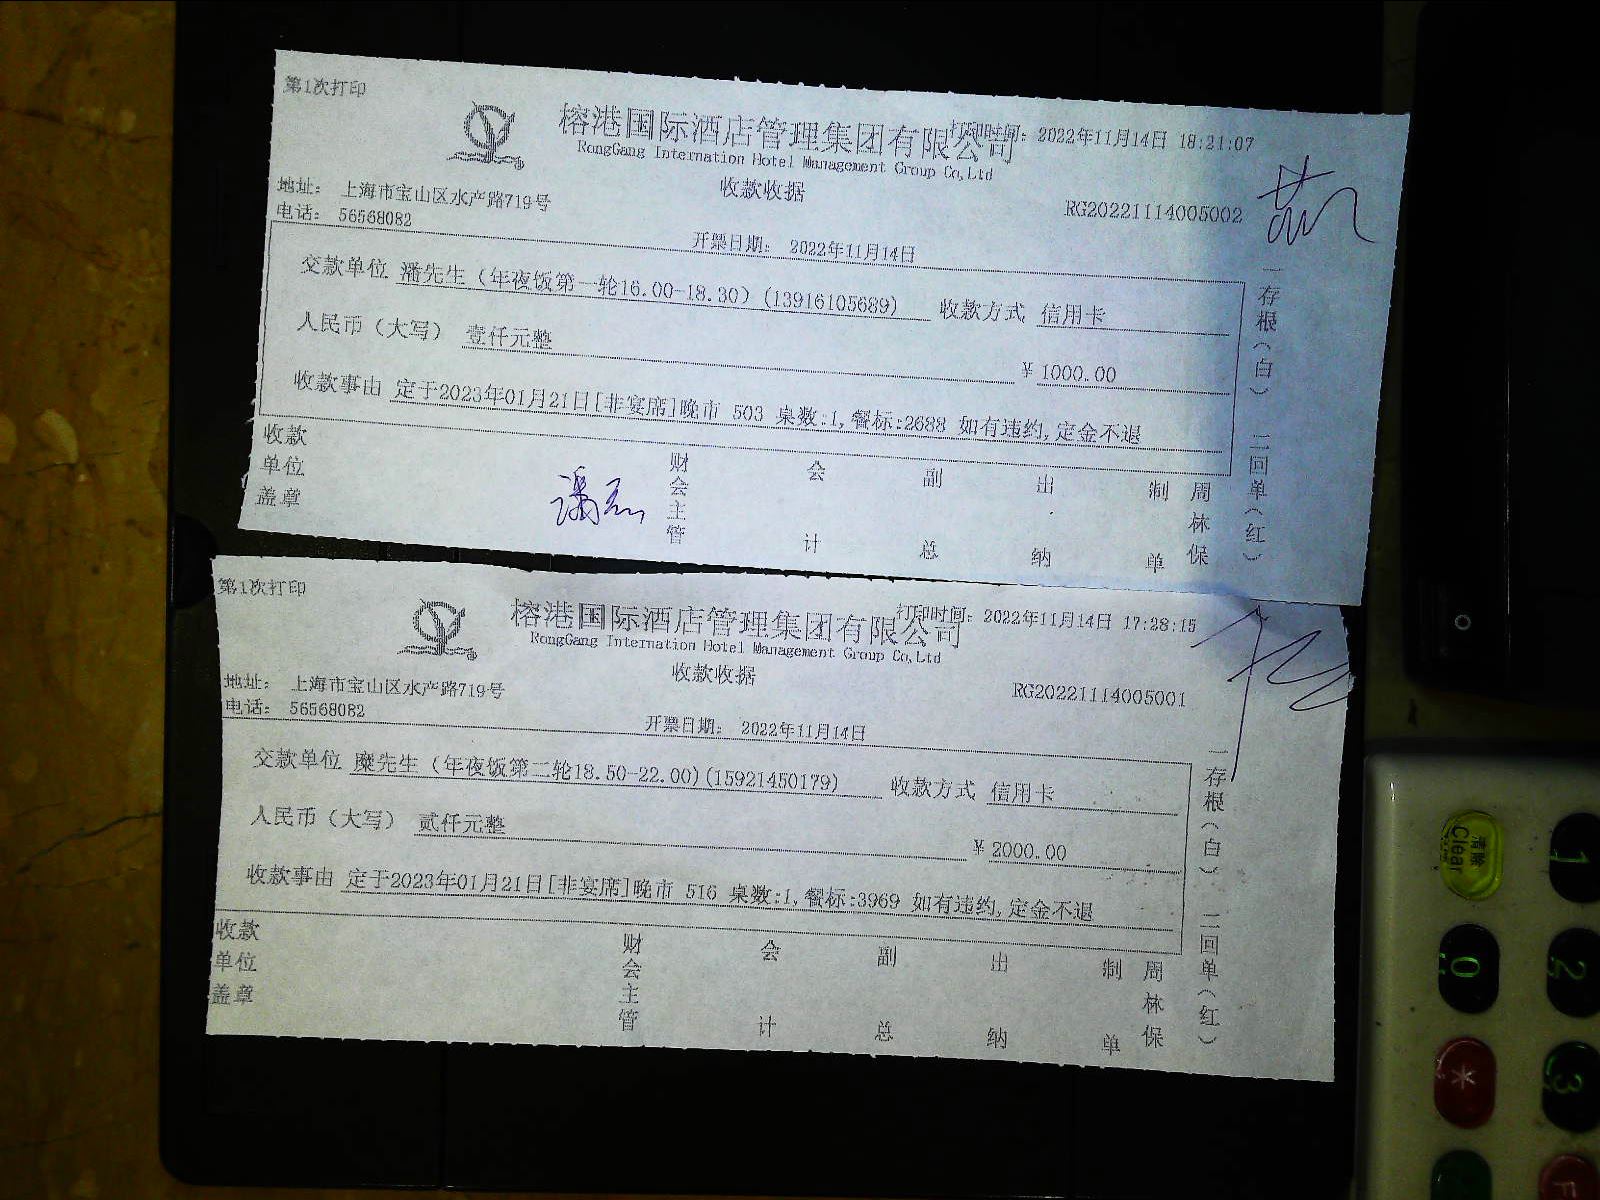 第1次打印
榕港国际酒店管理集团有限公司
打印时间: 2022年11月14日 18:21:07
RongGang Internation Hotel Management Group Co,Ltd
收款收据
地址: 上海市宝山区水产路719号
RG20221114005002
电话: 56568082
开票日期: 2022年11月14日
交款单位 潘先生（年夜饭第一轮16.00-18.30）(13916105689) 收款方式 信用卡
人民币（大写） 壹仟元整 ¥ 1000.00
收款事由 定于2023年01月21日[非宴席]晚市 503 桌数:1,餐标:2688 如有违约,定金不退
收款单位盖章 财会主管 会计 副总 出纳 制单 周林保
一存根（白） 二回单（红）
第1次打印
榕港国际酒店管理集团有限公司
打印时间: 2022年11月14日 17:28:15
RongGang Internation Hotel Management Group Co,Ltd
收款收据
地址: 上海市宝山区水产路719号
RG20221114005001
电话: 56568082
开票日期: 2022年11月14日
交款单位 糜先生（年夜饭第二轮18.50-22.00)(15921450179) 收款方式 信用卡
人民币（大写） 贰仟元整 ¥ 2000.00
收款事由 定于2023年01月21日[非宴席]晚市 516 桌数:1,餐标:3969 如有违约,定金不退
收款单位盖章 财会主管 会计 副总 出纳 制单 周林保
一存根（白） 二回单（红）
清除
Clear
1
0
2
*
3